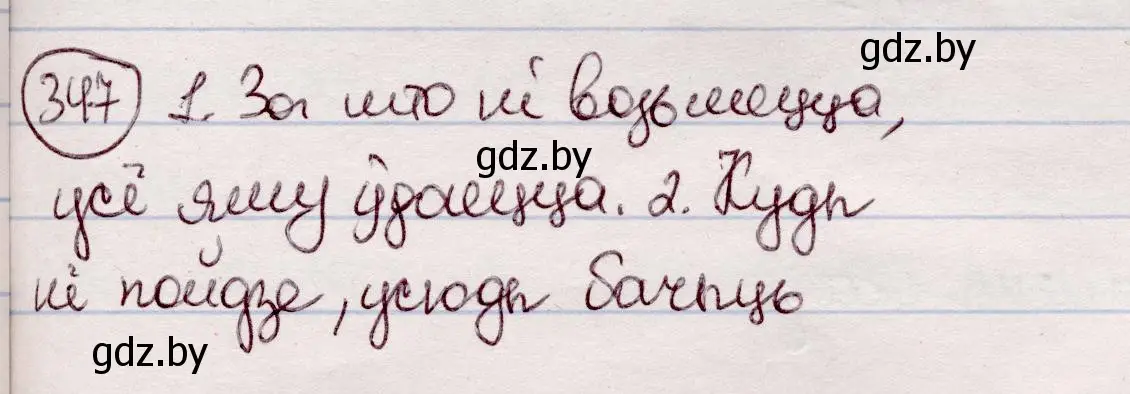 gdz.by
347 1. За што ні возьмецца,
gdz.by
усё яму ўдаецца. 2. Куды
ні пойдзе, усюды бачыць
gdz.by